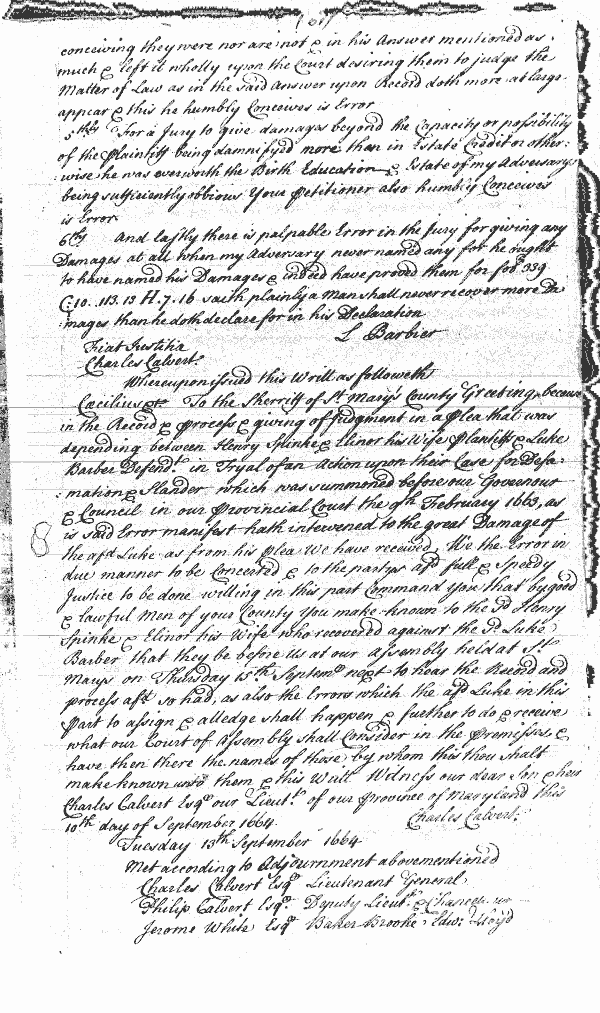 conceiving they were nor are not & in his Answer mentioned as
much & left it wholly upon the Court desiring them to judge the
Matter of Law as in the said Answer upon Record doth more at large
appear & this he humbly Conceives is Error
5thly For a Jury to give damages beyond the Capacity or possibility
of the Plaintiff being damnifyed more then in Estate Credit or other:
wise he was ever worth the Birth Education & Estate of my Adversarys
being sufficiently obvious Your Petitioner also humbly Conceives
is Error
6thly And lastly there is palpable Error in the Jury for giving any
Damages at all when my Adversary never named any for he ought
to have named his Damages & indeed have proved them for fol. 339
C:10. .113.13 H.7.16 saith plainly a Man shall never recover more Da
mages than he doth declare for in his Declaration
L Barbier
Fiat Justitia
Charles Calvert.
Whereupon issued this Writt as followeth
Cæcilius &c. To the Sherriff of St Mary's County Greeting, because
in the Record & process & giving of Judgment in a Plea that was
depending between Henry Spinke & Elinor his Wife Plantiffs & Luke
Barber Defendt. in Tryal of an Action upon their Case for Defa:
mation & Slander which was summoned before our Governour
& Council in our Provincial Court the 9th February 1663, as
is said Error manifest hath intervened to the great Damage of
the afd Luke as from his Plea We have received, We the Error in
8
due manner to be Corrected & to the partys afd full & Speedy
Justice to be done willing in this part Command You that by good
& lawful Men of your County You make known to the sd Henry
Spinke & Elinor his Wife who recovered against the sd. Luke
Barber that they be before Us at our Assembly held at St
Marys on Thursday 15th Septemr next to hear the Record and
process afd. so had, as also the Errors which the afd Luke in this
Part to assign & alledge shall happen & further to do & receive
what our Court of Assembly shall Consider in the Premisses &
have then there the names of those by whom this thou shalt
make known unto them & this Writt Witness our dear Son & heir
Charles Calvert Esqr our Lieut. of our Province of Maryland this
10th day of September 1664 Charles Calvert.
Tuesday 13th September 1664
Met according to Adjournment abovementioned
Charles Calvert Esqr Lieutenant General
Philip Calvert Esqr. Deputy Lieut. & Chancellor
Jerome White Esqr Baker Brooke Edw: Lloyd